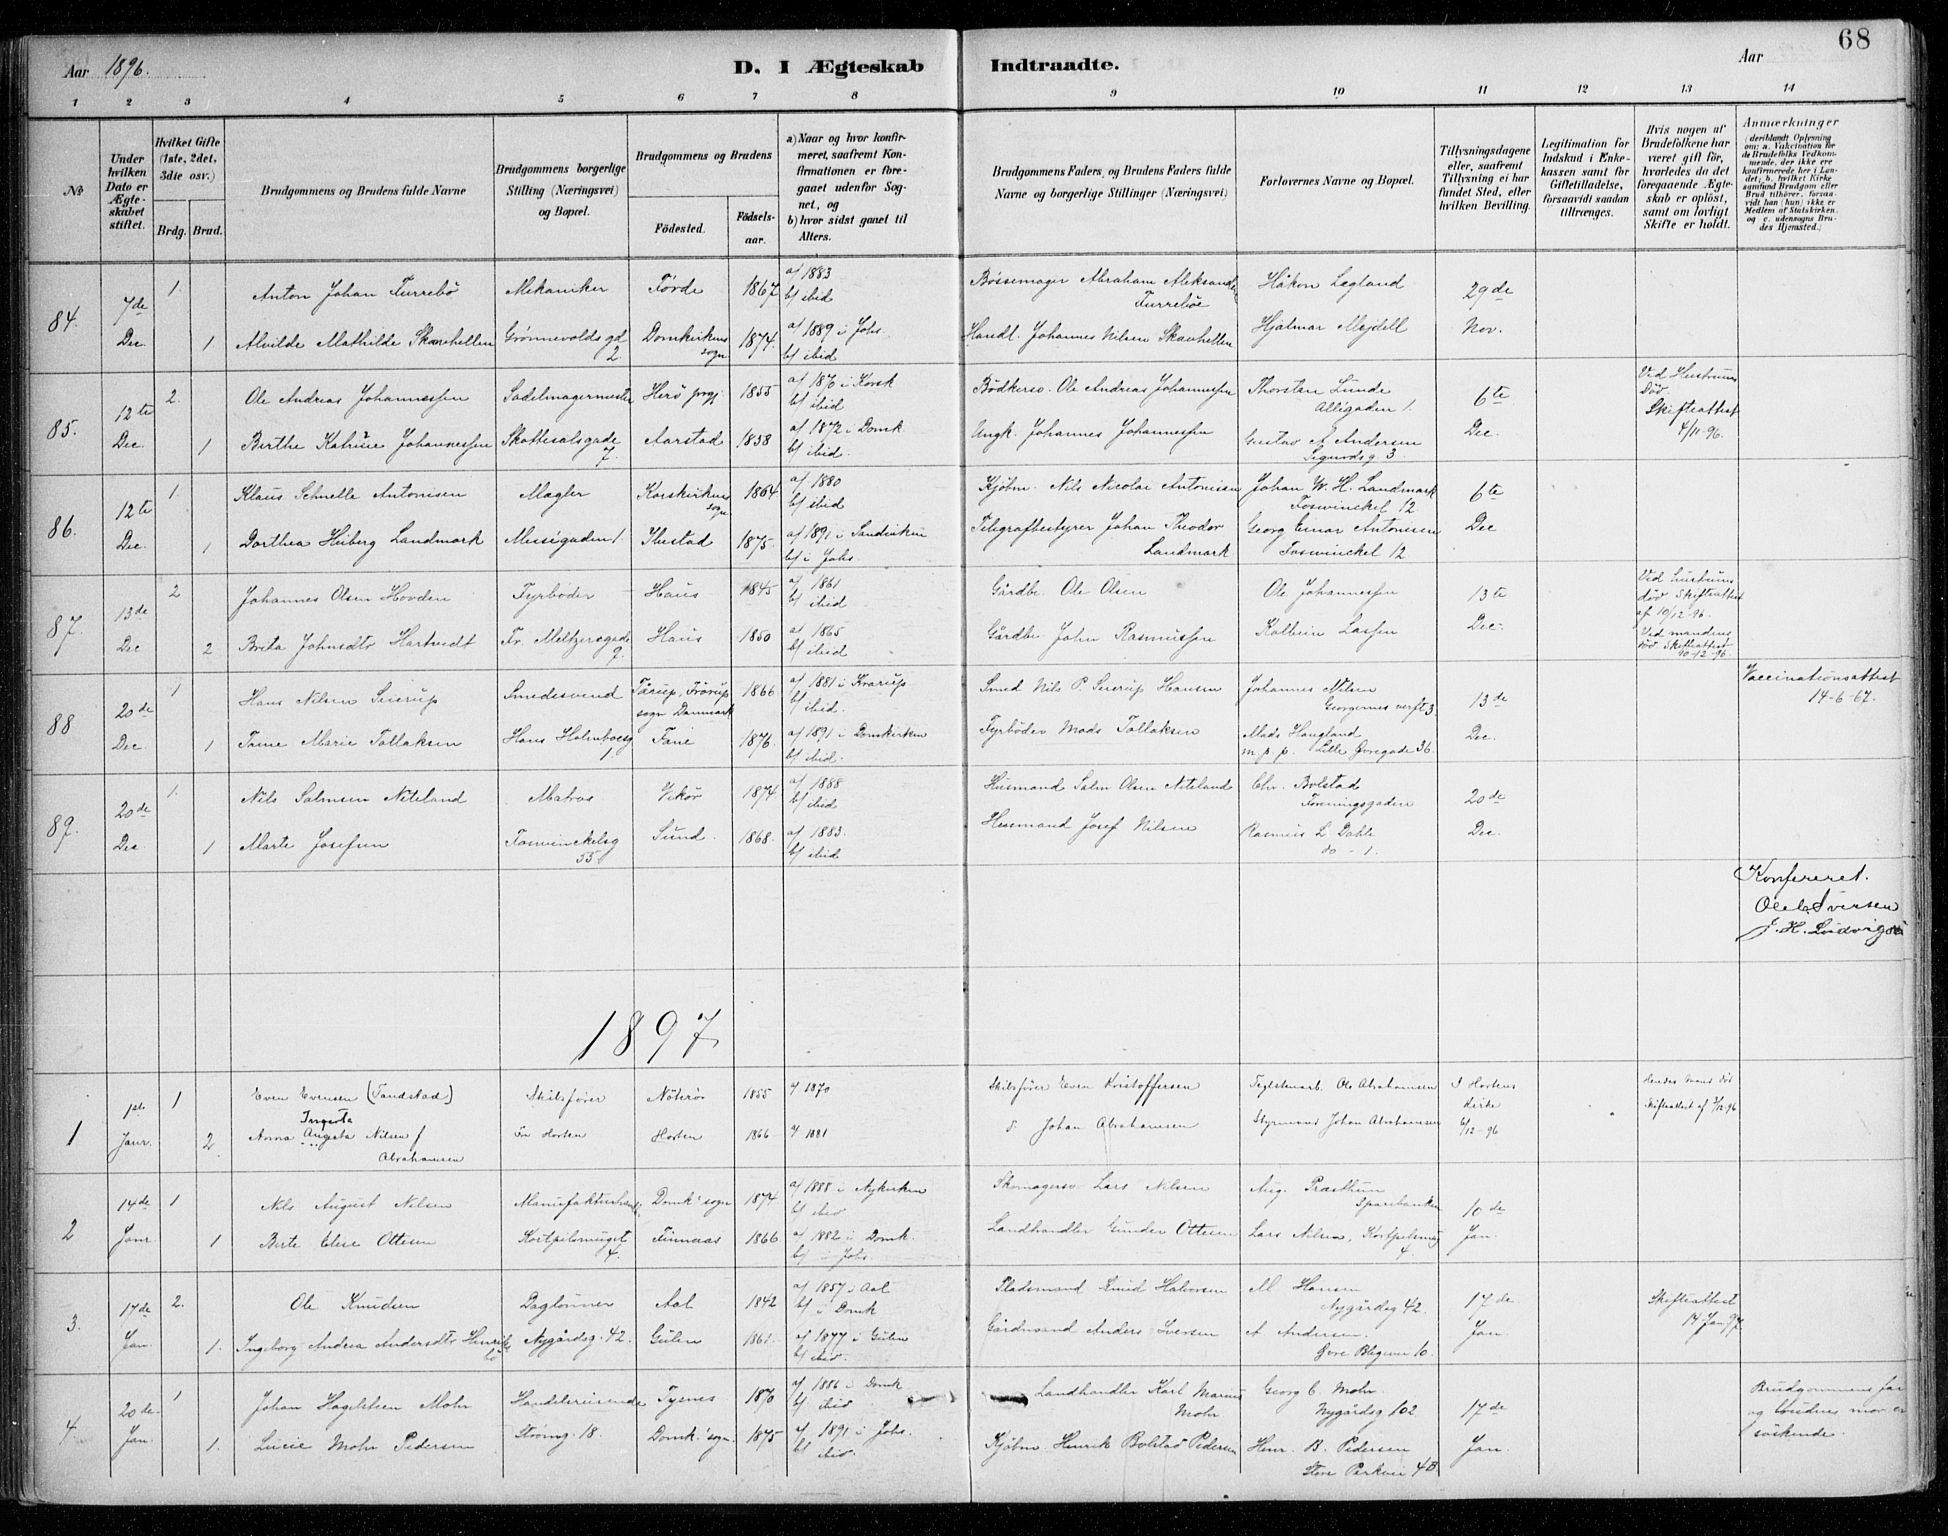 68
Aar 1896.
D. I Ægteskab Indtraadte.
Aar
1 2 3 4 5 6 7 8 9 10 11 12 13 14
No
Under hvilken Dato er Ægteskabet stiftet.
Hvilket Gifte (1ste, 2det, 3die osv.)
Brdg. Brud.
Brudgommens og Brudens fulde Navne
Brudgommens borgerlige Stilling (Næringsvei) og Bopæl.
Brudgommens og Brudens
Födested.
Födselsaar.
a) Naar og hvor konfirmeret, saafremt Konfirmationen er foregaaet udenfor Sognet, og
b) hvor sidst ganet til Alters.
Brudgommens Faders, og Brudens Faders fulde Navne og borgerlige Stillinger (Næringsvei)
Forlovernes Navne og Bopæl.
Tillysningsdagene eller, saafremt Tillysning ei har fundet Sted, efter hvilken Bevilling.
Legitimation for Indskud i Enkekassen samt for Giftetilladelse, forsaavidt saadan tiltrænges.
Hvis nogen af Brudefolkene har været gift før, hvorledes da det foregaaende Ægteskab er opløst, samt om lovligt Skifte er holdt.
Anmærkninger (deriblandt Oplysning om: a. Vakcination for de Brudefolks Vedkommende, der ikke ere konfirmerede her i Landet; b. hvilket Kirkesamfund Brudgom eller Brud tilhører, forsaavidt han (hun) ikke er Medlem af Statskirken, og c. udensogns Brudes Hjemsted.)
84. 7de Dec. 1. Anton Johan Furrebö Mekaniker Förde 1867 a/ 1883 b/ ibid Bössemager Abraham Aleksander Furreböe Håkon Legland 29de
1 Alvilde Mathilde Skavhellen Grønnevolds gd 2 Domkirkens sogn 1874. a/ 1889 i Johs. b/ ibid Handl. Johannes Nilsen Skavhellen Hjalmar Mejdell Nov.
85. 12te Dec. 2. Ole Andreas Johannessen Sadelmagermester Herö prgj. 1855 a/ 1870 i Korsk b/ ibid Bödkersv. Ole Andreas Johannessen Thorstan Lunde Alligaden 1. 6te Ved Hustruens Död Skifteattest 4/11-96.
1 Berthe Katrine Johannessen Skottesalsgade 7. Aarstad 1858 a/ 1872 i Domk. b/ ibid. Ungk. Johannes Johannessen Gustav A. Andersen Sigurdsg 3 Dec.
86. 12te Dec. 1. Klaus Schnelle Antonisen Mægler Korskirkens sogn 1864 a/ 1880 b/ ibid Kjöbm. Nils Nicolai Antonisen Johan W. H. Landmark Foswinckel 12 6te
1 Dorthea Heiberg Landmark Messigaden 1. Ilustad 1875. a/ 1891 i Sandviken b/ i Johs. Telegrafbestyrer Johan Theodor Landmark Georg Einar Antonisen Foswinckel 12 Dec
87. 13de Dec 2 Johannes Olsen Hovden Fyrböder Haus 1845 a/ 1861 b/ ibid Gårdbr. Ole Olsen Ole Johannessen 13te Ved Hustruens död Skifteattest af 10/12-96.
2 Brita Johnsdtr Hartvedt Fr. Meltzersgade 9. Haus 1850 a/ 1865 b/ ibid Gårdbr John Rasmussen Kolbein Lassen Dec. Ved mandens död Skifteattest 10-12-96.
88 20de Dec 1 Hans Nilsen Seierup Smedesvend Tårup, Frörup sogn Danmark 1866 a/ 1881 i Krarup b/ ibid. Smed Nils P. Seierup Hansen Johannes Nilsen Georgernes verft 3. 13de Vaccinationsattest 14-6-67.
1 Marie Tollaksen Hans Holmboesg 1. Fane 1876. a/ 1891 i Domkirken b/ ibid. Fyrböder Mads Tollaksen Mads Haugland m.p.p. Lille Øvregade 36. Dec.
89. 20de Dec 1. Nils Salmsen Niteland Matros Vikör 1874 a/ 1888 b/ ibid Husmand Salm Olsen Niteland Chr. Bolstad Foreningsgaden 20de
1 Marte Josefsen Foswinckelsg 55 Sund. 1868. a/ 1883. b/ ibid Husmand Josef Nilsen Rasmus L. Dahle do - 1. Dec.
Konfereret.
Ole Iversen
J. H. Ludvigsen
1897
1 1ste Janr. 1 Even Evensen (Tandstad) Skibsfører Nötterö 1855 a/ 1870 Skibsfører Even Kristoffersen Teglstensarb. Ole Abrahamsen I Hortens kirke 6/12-96 Hendes Mand död Skifteattest af 7/12 96
2. Anna Ingesta Augesta Nilsen f Abrahamsen Fra Horten Horten 1866 a/ 1881 Johan Abrahamsen Styrmand Johan Abrahamsen
2 14de Janr 1 Nils August Nilsen Manufakturhandl. Domk' sogn 1874 a/ 1888 i Nykirken b/ ibid Skomagersv Lars Nilsen Aug. Præsthun Sparebanken 10de
1 Birte Elise Ottesen Kortpilsmuget 4. Finnaas 1866 a/ 1882 i Domk. b/ i Johs. Landhandler Gunder Ottesen Lars Nilsen, Kortpelsmug 4. Jan.
3. 17de Jan 2. Ole Knudsen Daglönner Aal 1842 a/ 1857 i Aal b/ i Domk Pladsmand Knud Halvorsen M Hansen Nygårdsg 42. 17de Skifteattest 14 Jan 97.
1. Ingeborg Andrea Andersdtr Nygårdsg. 42 Gulen 1861. a/ 1877 i Gulen b/ ibid. Gårdmand Anders Iversen A Andersen. Øvre Blegevei 10. Jan.
4. 20de Jan. 1 Johan Hagelsteen Mohr Handelsreisende Tysnes 1870 a/ 1886 i Domk b/ ibid Landhandler Karl Marius Mohr Georg C. Mohr. Nygårdsg 102 17de Brudgommens far og brudens mor er söskende.
1. Lucie Mohr Pedersen Strömg. 18. Domk.' sogn. 1875 a/ 1891 i Johs. b/ ibid. Kjöbm Henrik Bolstad Pedersen Henr. B. Pedersen Store Parkvei 4B Jan.